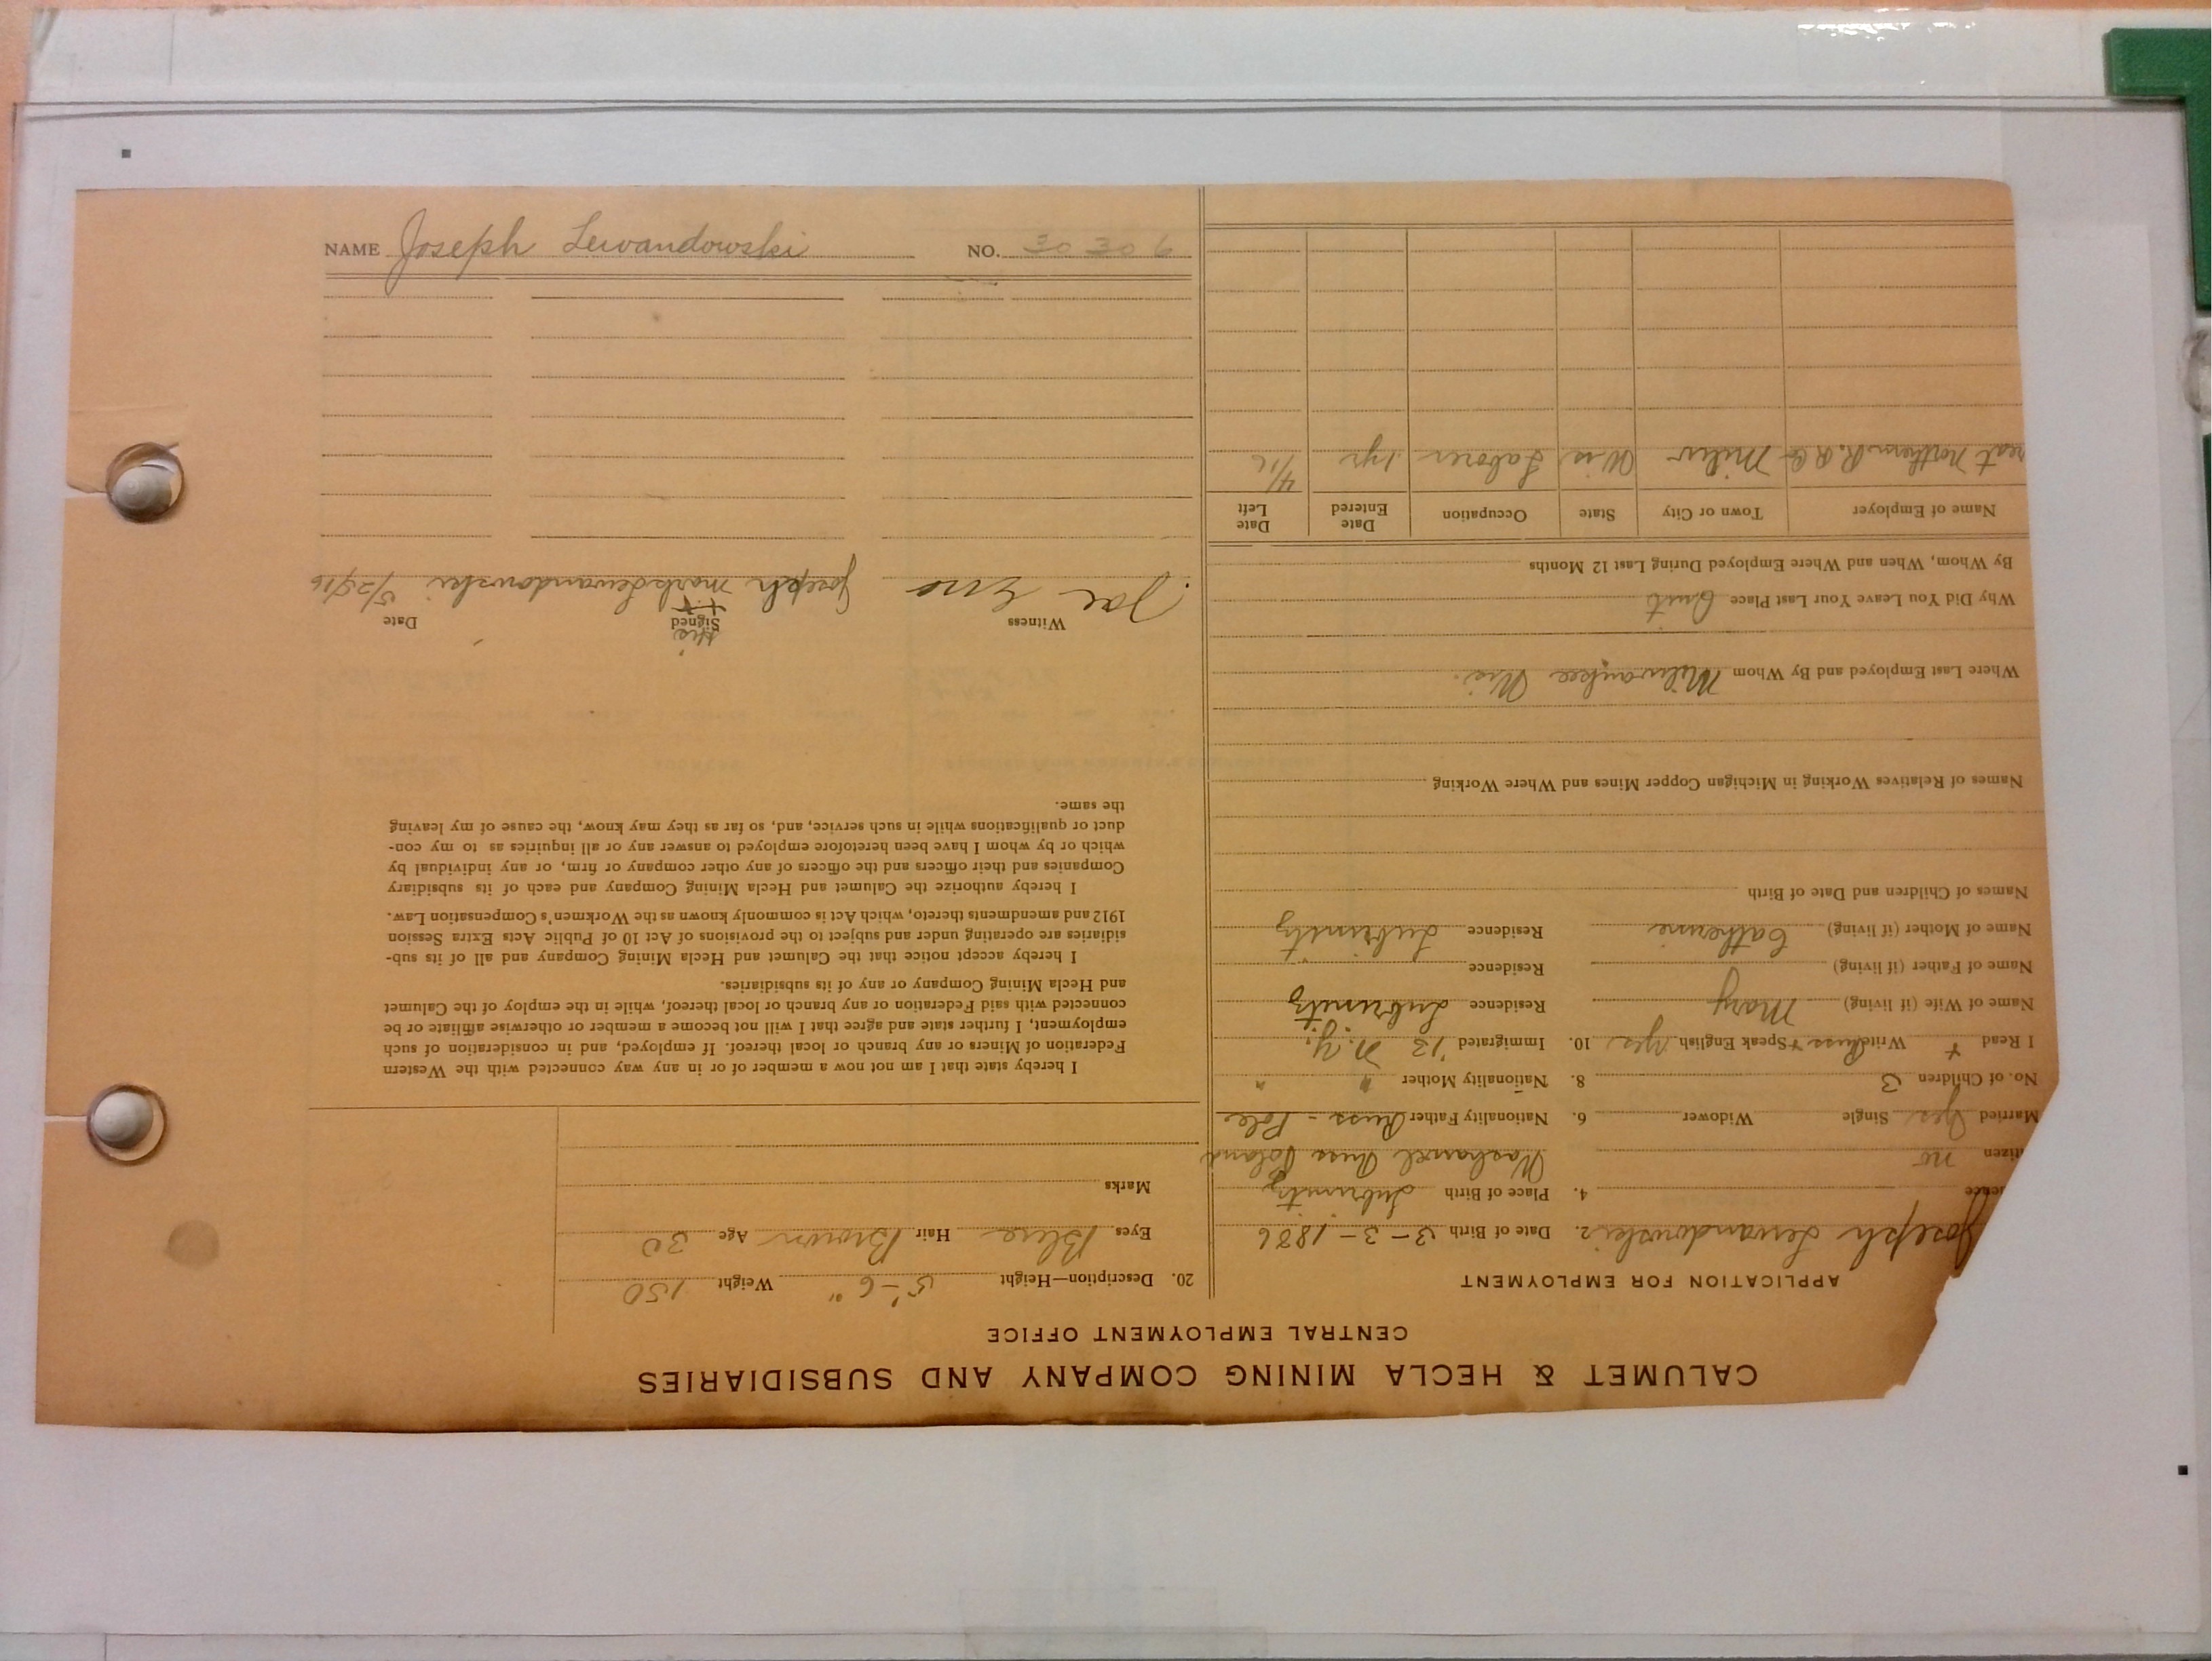 NAME Joseph Lewandowski NO. 30306
CALUMET & HECLA MINING COMPANY AND SUBSIDIARIES
CENTRAL EMPLOYMENT OFFICE
APPLICATION FOR EMPLOYMENT
Joseph Lewandowski 2. Date of Birth 3-3-1886
4. Place of Birth
no Russ Poland
Married Yes Single Widower 6. Nationality Father Russ - Pole
No. of Children 3 8. Nationality Mother " "
I Read + Write Russ + Speak English yes 10. Immigrated '13 N.Y.
Name of Wife (if living) Mary Residence
Name of Father (if living) Residence
Name of Mother (if living) Catherine Residence
Names of Children and Date of Birth
Names of Relatives Working in Michigan Copper Mines and Where Working
Where Last Employed and By Whom Milwaukee Wis.
Why Did You Leave Your Last Place Quit
By Whom, When and Where Employed During Last 12 Months
Name of Employer Town or City State Occupation Date Entered Date Left
Northern R. R. Co Milw Wis Laborer 1 yr 4/16
20. Description—Height 5'-6" Weight 150
Eyes Blue Hair Brown Age 30
Marks
I hereby state that I am not now a member of or in any way connected with the Western
Federation of Miners or any branch or local thereof. If employed, and in consideration of such
employment, I further state and agree that I will not become a member or otherwise affiliate or be
connected with said Federation or any branch or local thereof, while in the employ of the Calumet
and Hecla Mining Company or any of its subsidiaries.
I hereby accept notice that the Calumet and Hecla Mining Company and all of its sub-
sidiaries are operating under and subject to the provisions of Act 10 of Public Acts Extra Session
1912 and amendments thereto, which Act is commonly known as the Workmen's Compensation Law.
I hereby authorize the Calumet and Hecla Mining Company and each of its subsidiary
Companies and their officers and the officers of any other company or firm, or any individual by
which or by whom I have been heretofore employed to answer any or all inquiries as to my con-
duct or qualifications while in such service, and, so far as they may know, the cause of my leaving
the same.
His
Witness Signed Date
+
Joseph mark Lewandowski 5/25/16